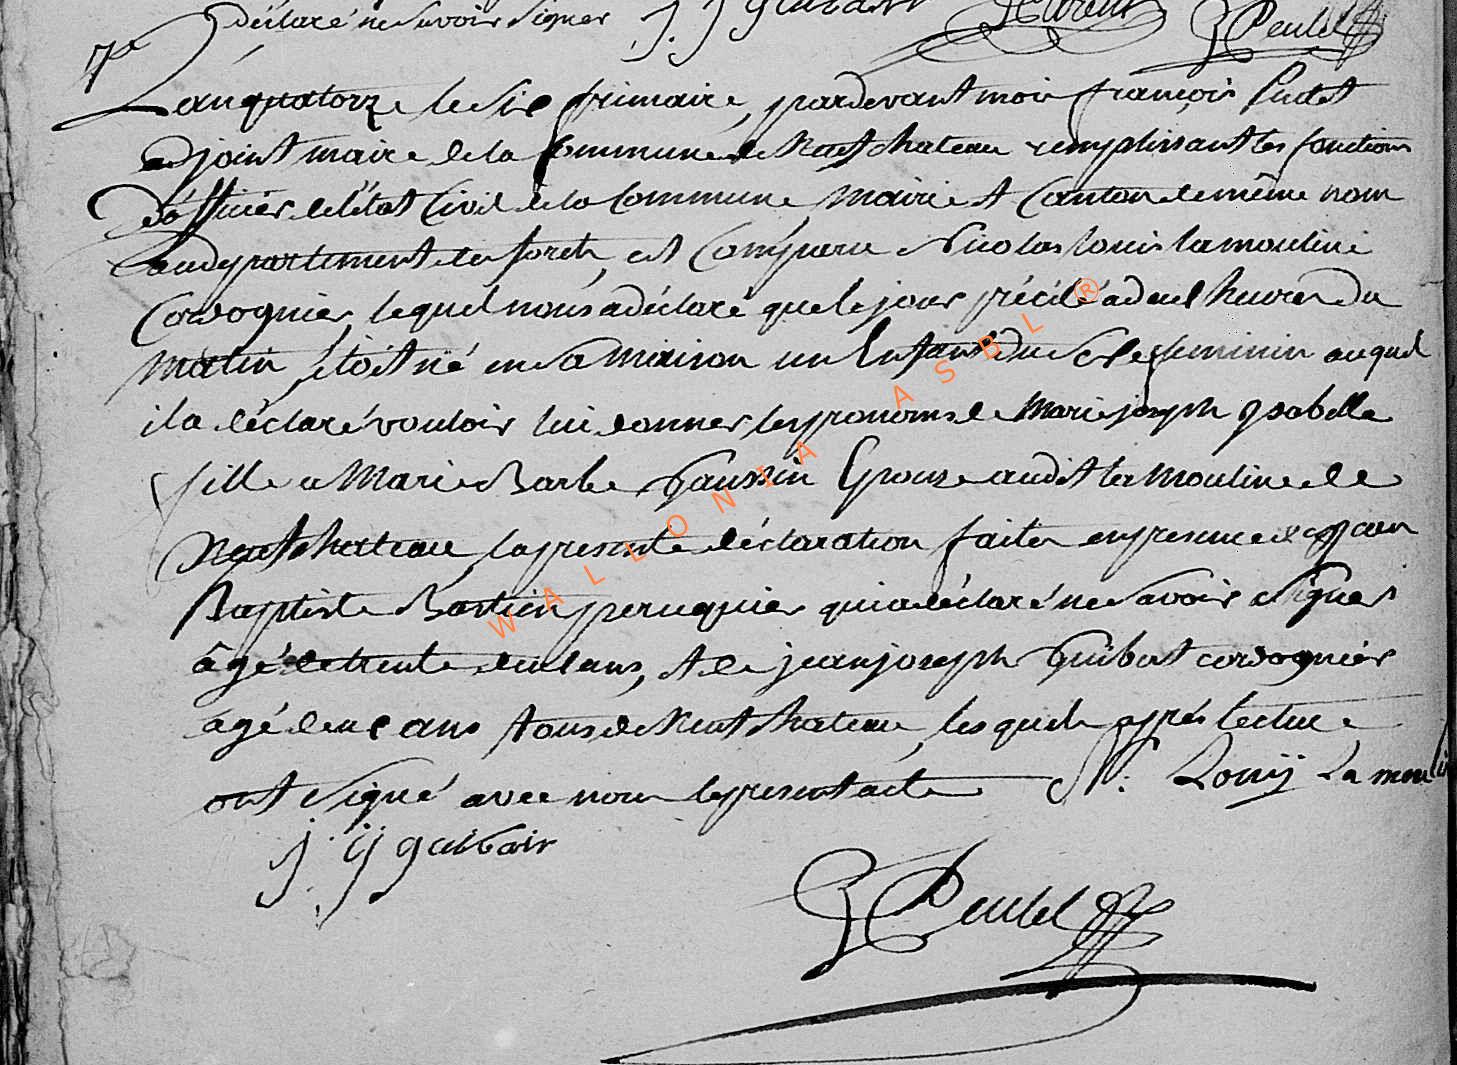 déclaré ne savoir signer
7e
L'an quatorze le six frimaire, pardevant moi françois
adjoint maire de la Commune de Neufchateau remplissant les fonctions
d'officier de l'état Civil de la Commune, Mairie et Canton de même nom
au departement des forets, est Comparu Nicolas louis lamouline
Cordognier, lequel nous a déclaré que le jour précité a deux heures du
matin, étoit né en sa maison un Enfant du sexe feminin auquel
il a déclaré vouloir lui donner les pronoms de Marie joseph ysabelle
fille a Marie Barbe Epouse audit la Mouline de
Neufchateau, la presente déclaration faite en presence de jean
Baptiste Bastien peruquier qui a déclaré ne savoir Signer
âgé de trente deux ans, et de jean joseph cordognier
âgé de ans tous de Neufchateau, lesquels après lecture
ont Signé avec nous le present acte N: Louij La moulin
WALLONIA ASBL ®